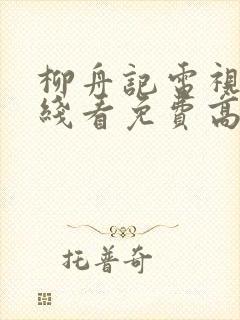 柳舟記雷視
綫看免費高
托普奇